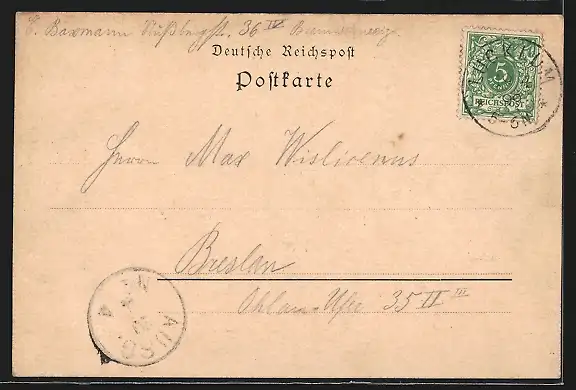 C. Baxmann Nußbergstr. 36 IV Braunschweig.
Deutsche Reichspost
Postkarte
5
REICHSPOST
Herrn Max Wislicenus
Breslau
Ohlau-Ufer 35 II III
AUSG.